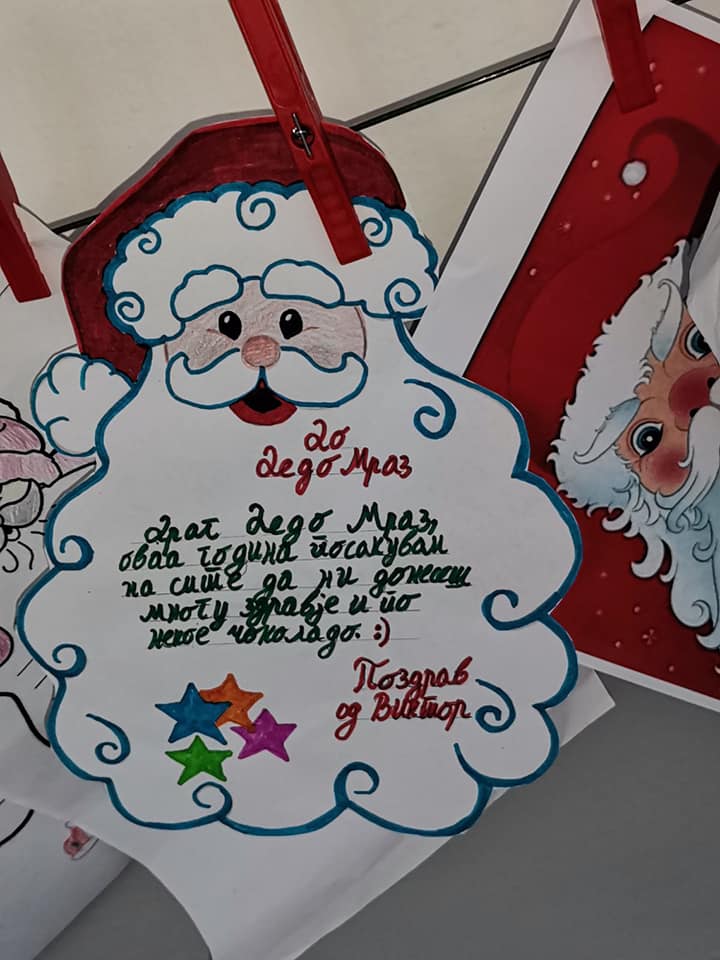 До
Дедо Мраз
Драг Дедо Мраз,
оваа година посакувам
на сите да ни донесеш
многу здравје и по
некое чоколадо. :)
Поздрав
од Виктор